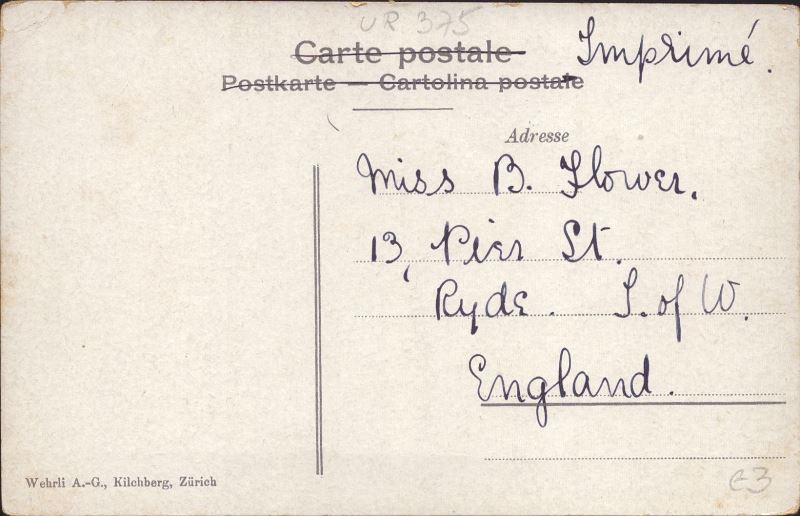 UR 375
Carte postale
Imprimé.
Postkarte — Cartolina postale
Adresse
Miss B. Flower.
13, Pier St.
Ryde. I. of W.
England.
Wehrli A.-G., Kilchberg, Zürich
e3